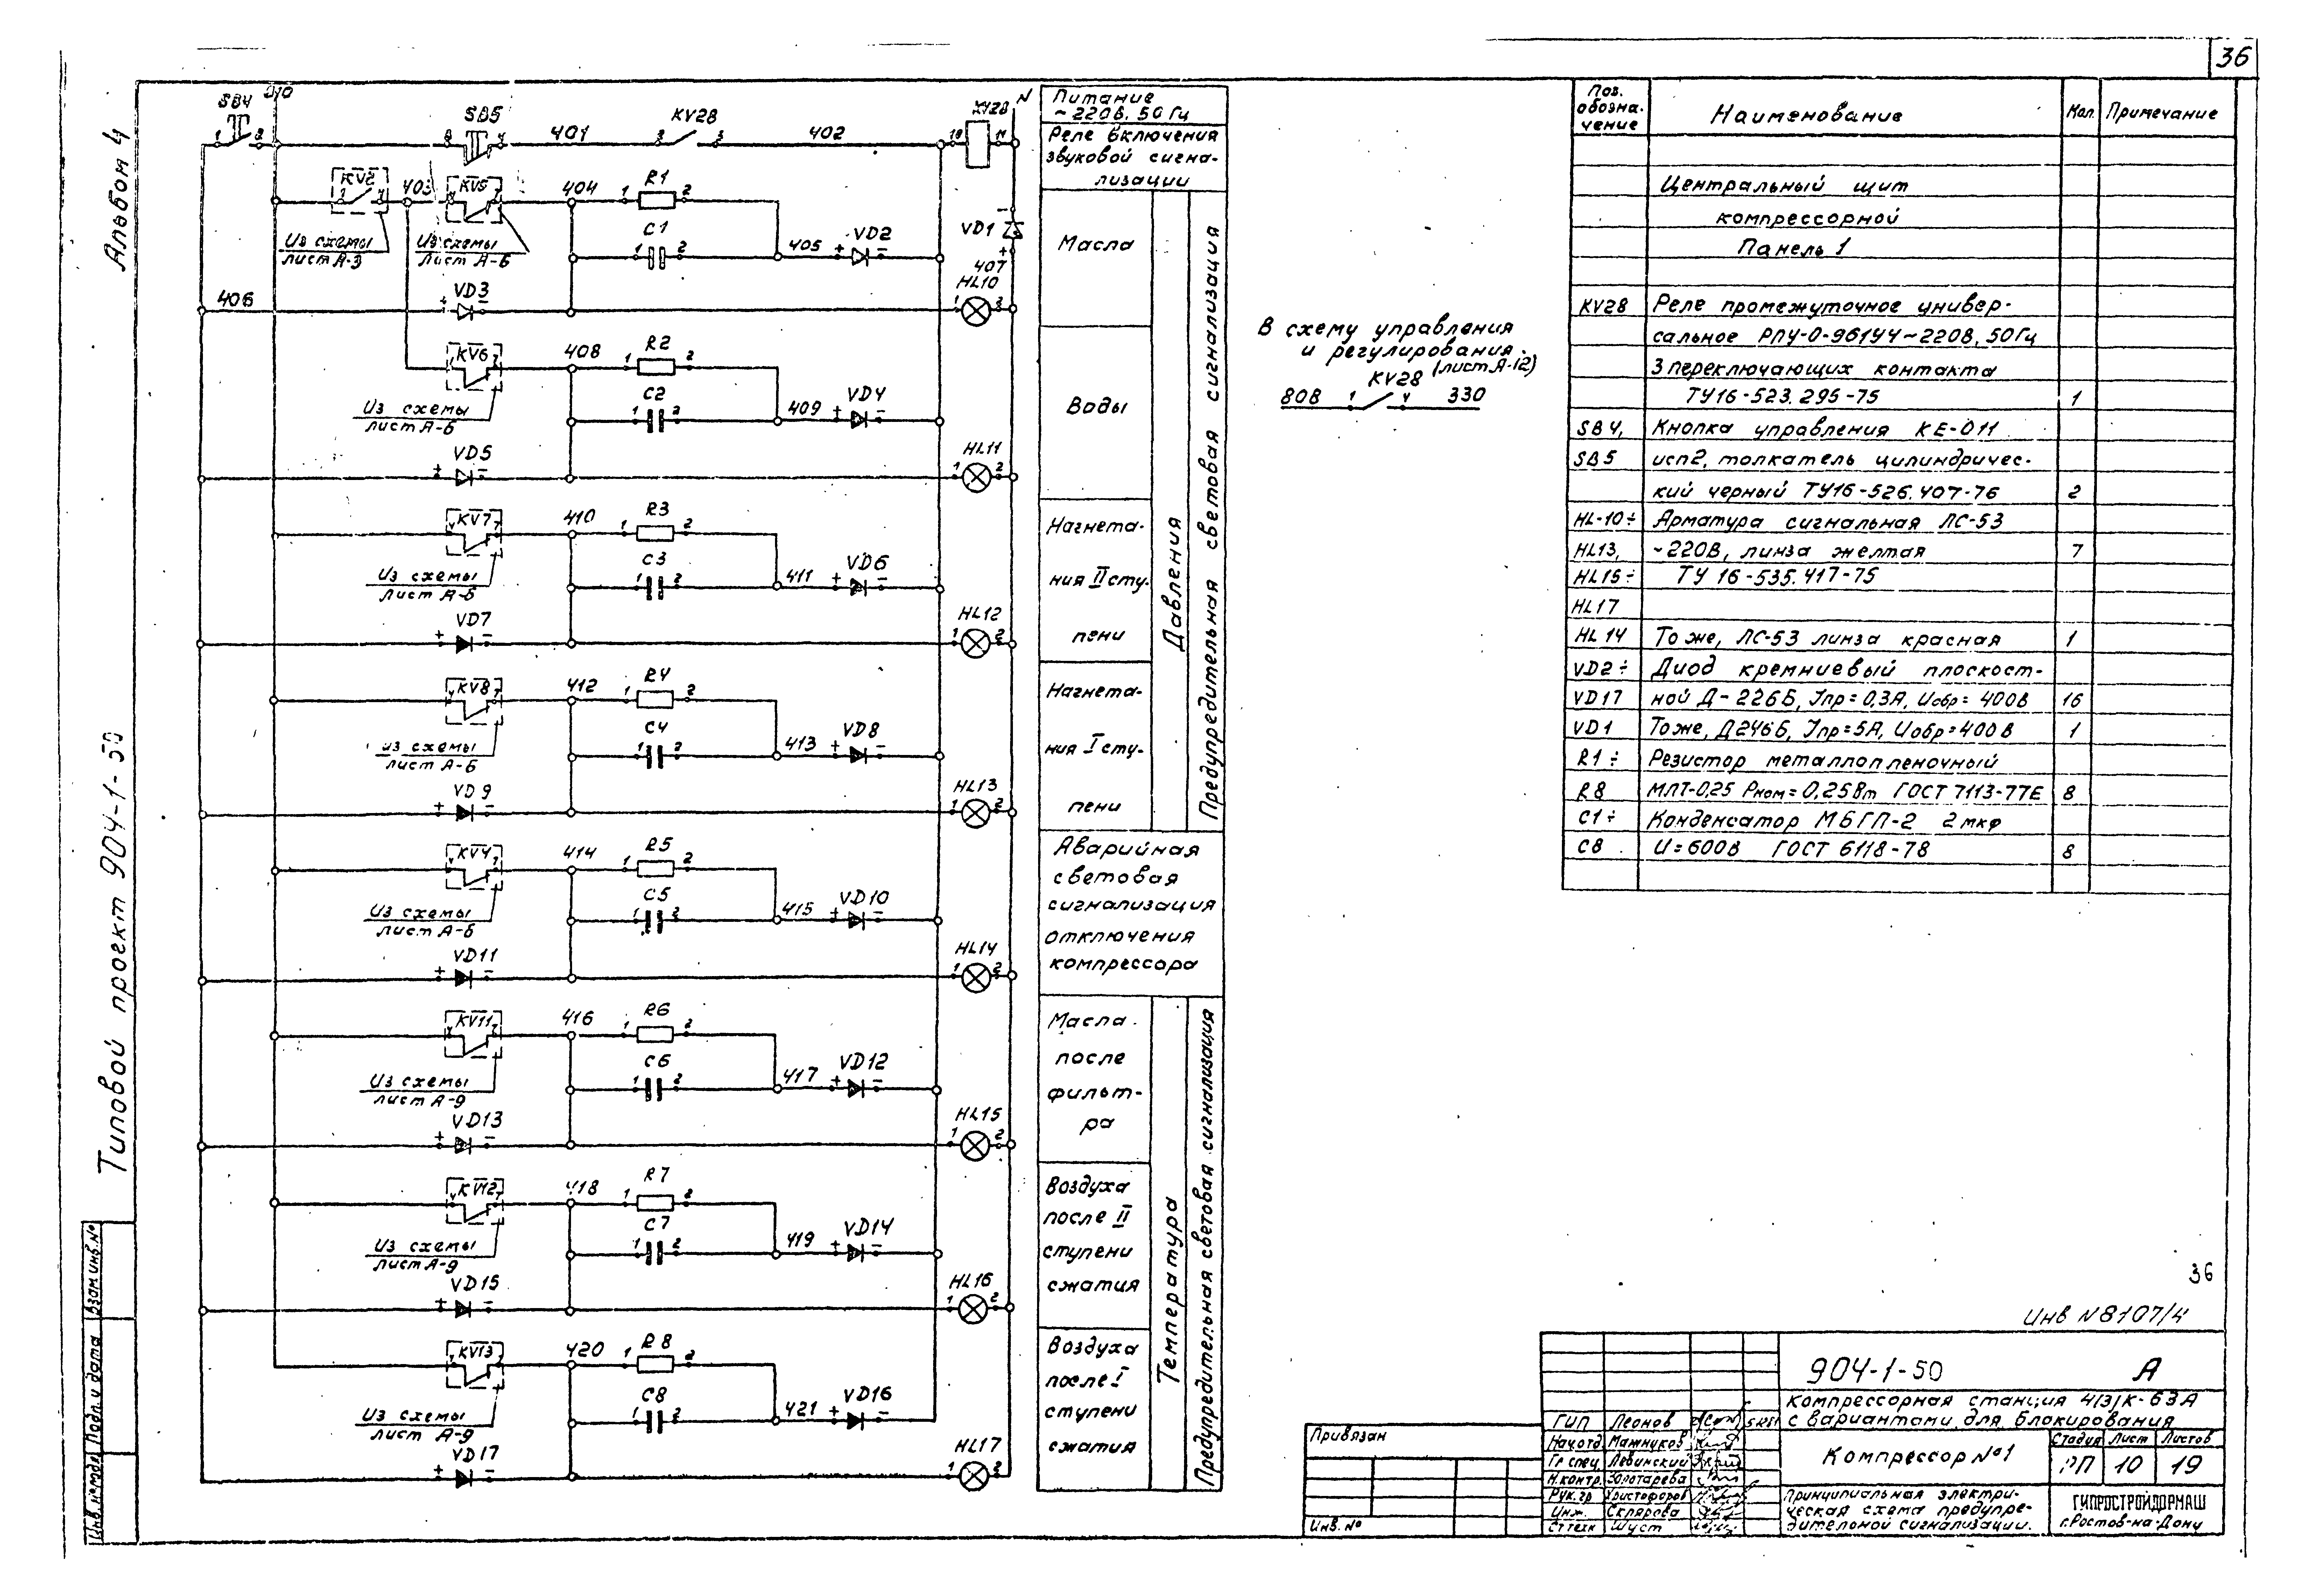 36
Альбом 4
Типовой проект 904-1-50
Взам инв. №
Подп. и дата
SB4
SB5
401
KV28
402
KV28
N
KV2
403
KV5
404
R1
C1
405
VD2
VD1
407
HL10
Из схемы
лист А-3
Из схемы
лист А-6
406
VD3
KV6
408
R2
C2
409
VD4
Из схемы
лист А-6
VD5
HL11
KV7
410
R3
C3
411
VD6
Из схемы
лист А-6
VD7
HL12
KV8
412
R4
C4
413
VD8
Из схемы
лист А-6
VD9
HL13
KV4
414
R5
C5
415
VD10
Из схемы
лист А-6
VD11
HL14
KV11
416
R6
C6
417
VD12
Из схемы
лист А-9
VD13
HL15
KV12
418
R7
C7
419
VD14
Из схемы
лист А-9
VD15
HL16
KV13
420
R8
C8
421
VD16
Из схемы
лист А-9
VD17
HL17
Питание
~220В, 50 Гц
Реле включения
звуковой сигна-
лизации
Масла
Воды
Нагнета-
ния II сту-
пени
Нагнета-
ния I сту-
пени
Давления
Предупредительная световая сигнализация
Аварийная
световая
сигнализация
отключения
компрессора
Масла
после
фильт-
ра
Воздуха
после II
ступени
сжатия
Воздуха
после I
ступени
сжатия
Температура
Предупредительная световая сигнализация
В схему управления
и регулирования
(лист А-12)
KV28
808 1 4 330
Поз. обозна- чение Наименование Кол. Примечание
Центральный щит
компрессорной
Панель 1
KV28 Реле промежуточное универ-
сальное РПУ-0-961У4~220В, 50Гц
3 переключающих контакта
ТУ16-523.295-75 1
SB4, Кнопка управления КЕ-011
SB5 исп2, толкатель цилиндричес-
кий черный ТУ16-526.407-76 2
HL-10÷ Арматура сигнальная ЛС-53
HL13, ~220В, линза желтая 7
HL15÷ ТУ 16-535.417-75
HL17
HL14 То же, ЛС-53 линза красная 1
VD2÷ Диод кремниевый плоскост-
VD17 ной Д-226Б, Jпр=0,3А, Uобр= 400В 16
VD1 То же, Д246Б, Jпр=5А, Uобр=400В 1
R1÷ Резистор металлопленочный
R8 МЛТ-0,25 Pном=0,25Вт ГОСТ 7113-77Е 8
C1÷ Конденсатор МБГП-2 2мкф
C8 U=600В ГОСТ 6118-78 8
36
Инв N8107/4
904-1-50 А
Компрессорная станция 4/3/К-63А
с вариантами для блокирования
Компрессор №1
Стадия Лист Листов
РП 10 19
Принципиальная электри-
ческая схема предупре-
дительной сигнализации.
ГИПРОСТРОЙДОРМАШ
г.Ростов-на-Дону
ГИП Леонов
Нач.отд. Мажников
Гр спец. Левинский
Н.контр. Золотарева
Рук.гр Христофоров
Инж. Склярова
Ст техн Шуст
Привязан
Инв. №